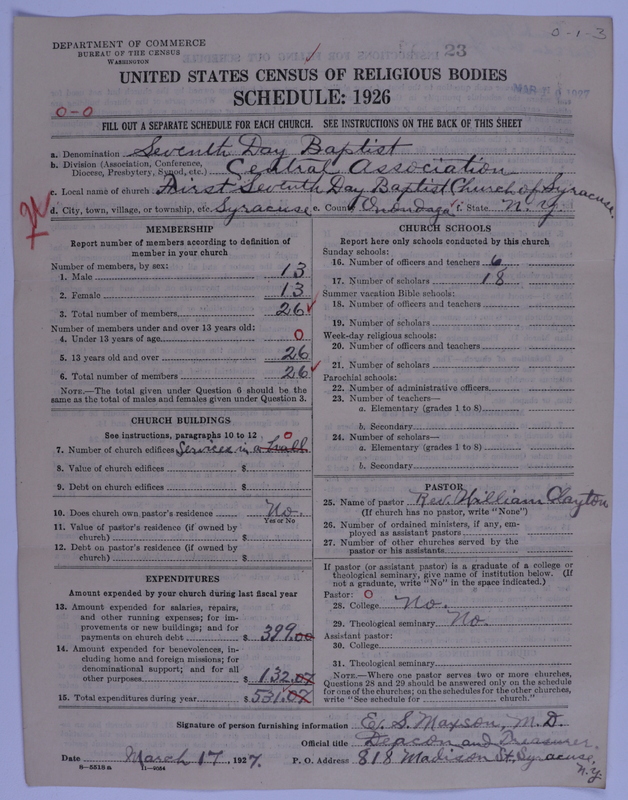 0-1-3
DEPARTMENT OF COMMERCE
BUREAU OF THE CENSUS
WASHINGTON
23
UNITED STATES CENSUS OF RELIGIOUS BODIES
SCHEDULE: 1926
0-0
FILL OUT A SEPARATE SCHEDULE FOR EACH CHURCH. SEE INSTRUCTIONS ON THE BACK OF THIS SHEET
a. Denomination Seventh Day Baptist
b. Division (Association, Conference, Diocese, Presbytery, Synod, etc.) Central Association
c. Local name of church First Seventh Day Baptist Church of Syracuse.
d. City, town, village, or township, etc. Syracuse e. County Onondaga f. State N. Y.
MEMBERSHIP
Report number of members according to definition of
member in your church
Number of members, by sex:
1. Male 13
2. Female 13
3. Total number of members 26
Number of members under and over 13 years old:
4. Under 13 years of age 0
5. 13 years old and over 26
6. Total number of members 26
NOTE.—The total given under Question 6 should be
same as the total of males and females given under Question 3.
CHURCH BUILDINGS
See instructions, paragraphs 10 to 12 0
7. Number of church edifices Services in a hall
8. Value of church edifices $
9. Debt on church edifices $
10. Does church own pastor's residence No.
Yes or No
11. Value of pastor's residence (if owned by
church) $
12. Debt on pastor's residence (if owned by
church) $
EXPENDITURES
Amount expended by your church during last fiscal year
13. Amount expended for salaries, repairs,
and other running expenses; for im-
provements or new buildings; and for
payments on church debt $ 399.00
14. Amount expended for benevolences, in-
cluding home and foreign missions; for
denominational support; and for all
other purposes $ 132.07
15. Total expenditures during year $ 531.07
CHURCH SCHOOLS
Report here only schools conducted by this church
Sunday schools:
16. Number of officers and teachers 6
17. Number of scholars 18
Summer vacation Bible schools:
18. Number of officers and teachers
19. Number of scholars
Week-day religious schools:
20. Number of officers and teachers
21. Number of scholars
Parochial schools:
22. Number of administrative officers
23. Number of teachers—
a. Elementary (grades 1 to 8)
b. Secondary
24. Number of scholars—
a. Elementary (grades 1 to 8)
b. Secondary
PASTOR
25. Name of pastor Rev. William Clayton
(If church has no pastor, write "None")
26. Number of ordained ministers, if any, em-
ployed as assistant pastors
27. Number of other churches served by the
pastor or his assistants
If pastor (or assistant pastor) is a graduate of a college or
theological seminary, give name of institution below. (If
not a graduate, write "No" in the space indicated.)
Pastor: 0
28. College No.
29. Theological seminary No
Assistant pastor:
30. College
31. Theological seminary
NOTE.—Where one pastor serves two or more churches,
Questions 28 and 29 should be answered only on the schedule
for one of the churches; on the schedules for the other churches,
write "See schedule for church."
Signature of person furnishing information E. S. Maxson, M. D.
Official title Deacon and Treasurer.
Date March 17, 1927. P. O. Address 818 Madison St. Syracuse, N. Y.
8—5518a 11—9054